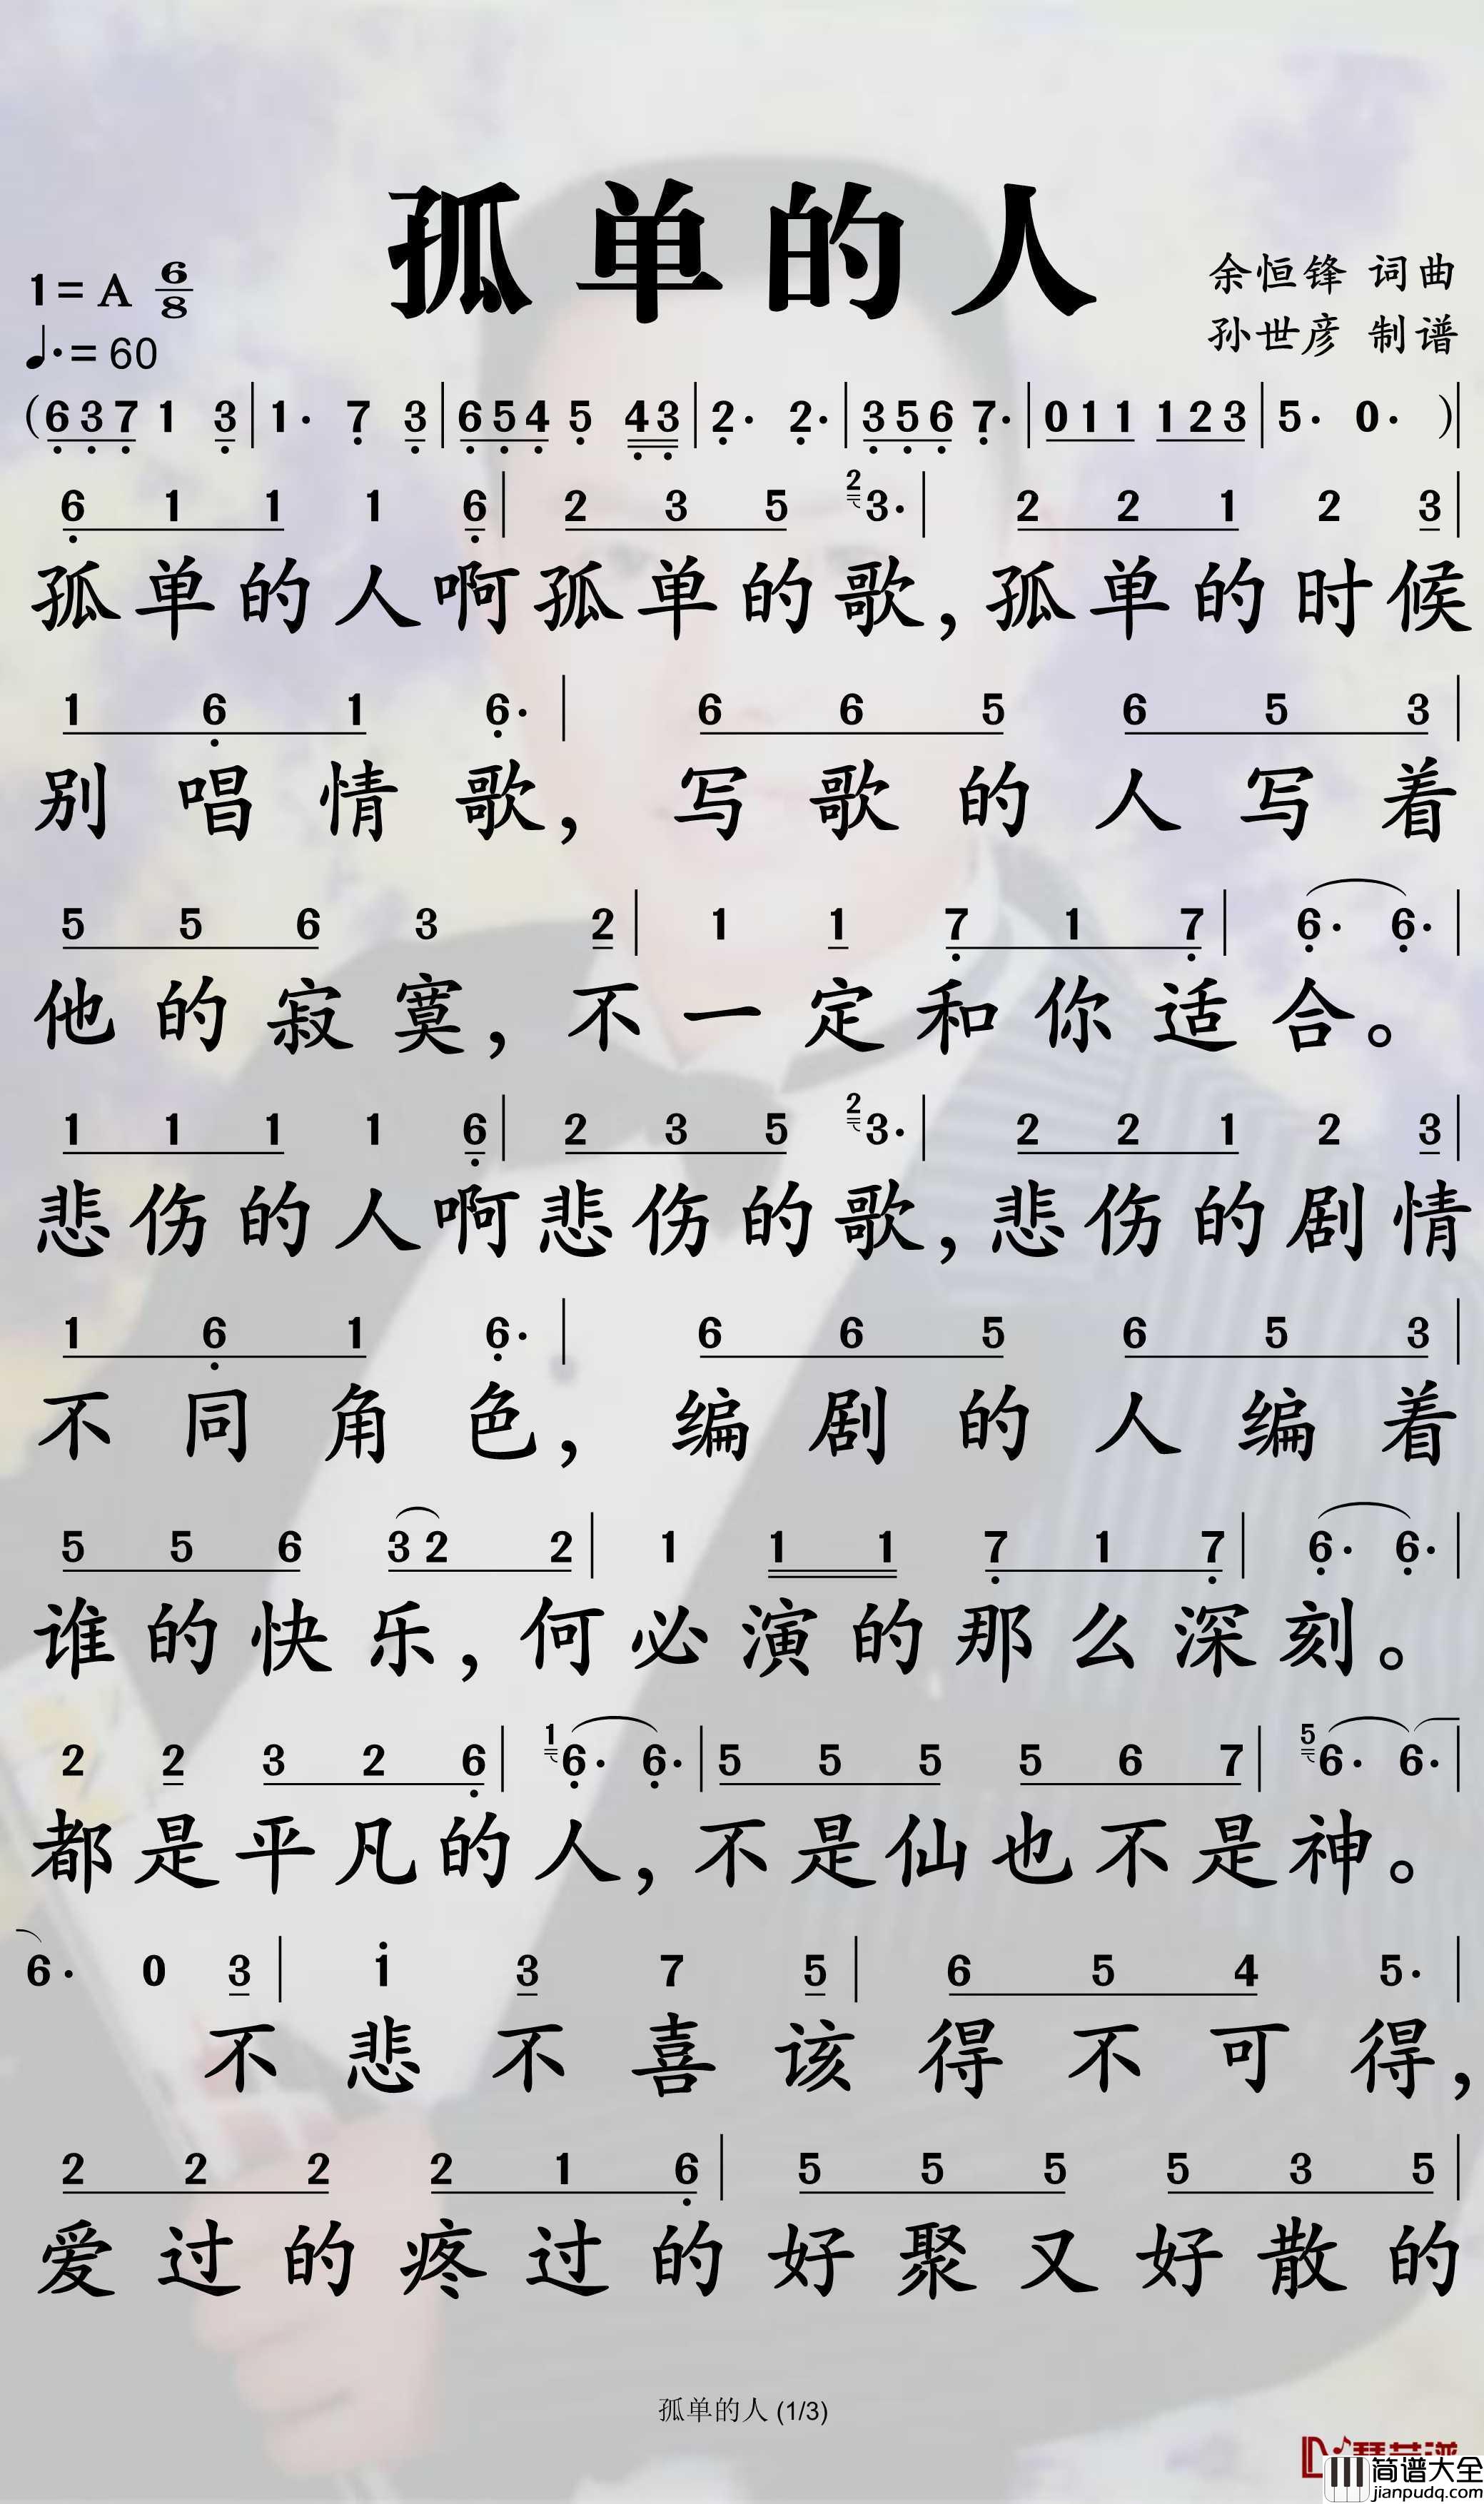 孤单的人
1=A 6/8
余恒锋 词曲
♩.=60
孙世彦 制谱
(6̣ 3̣ 7̣ 1 3̣ | 1· 7̣ 3̣ | 6̣ 5̣ 4̣ 5̣ 4̣ 3̣ | 2̣· 2̣· | 3̣ 5̣ 6̣ 7̣· | 0 1 1 1 2 3 | 5· 0· )|
6̣ 1 1 1 6̣ | 2 3 5 2 3· | 2 2 1 2 3 |
孤单的人啊孤单的歌,孤单的时候
1 6̣ 1 6̣· | 6 6 5 6 5 3 |
别唱情歌,写歌的人写着
5 5 6 3 2 | 1 1 7̣ 1 7̣ | 6̣· 6̣· |
他的寂寞,不一定和你适合。
1 1 1 1 6̣ | 2 3 5 2 3· | 2 2 1 2 3 |
悲伤的人啊悲伤的歌,悲伤的剧情
1 6̣ 1 6̣· | 6 6 5 6 5 3 |
不同角色,编剧的人编着
5 5 6 3 2 2 | 1 1 1 7̣ 1 7̣ | 6̣· 6̣· |
谁的快乐,何必演的那么深刻。
2 2 3 2 6̣ | 1 6̣· 6̣· | 5 5 5 5 6 7 | 5 6· 6· |
都是平凡的人,不是仙也不是神。
6· 0 3 | 1̇ 3 7 5 | 6 5 4 5· |
不悲不喜该得不可得,
2 2 2 2 1 6̣ | 5 5 5 5 3 5 |
爱过的疼过的好聚又好散的
孤单的人 (1/3)
简谱大全
jianpudq.com